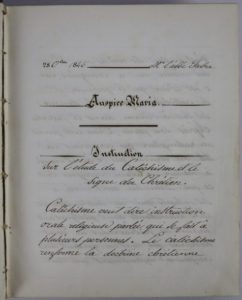 28 8bre 1846 Mr l'abbé
Auspice Maria.
Instruction
Sur l'étude du Catéchisme et le
signe du Chrétien.
Catéchisme veut dire instruction
orale religieuse parlée qui se fait à
plusieurs personnes. Le catéchisme
renferme la doctrine chrétienne